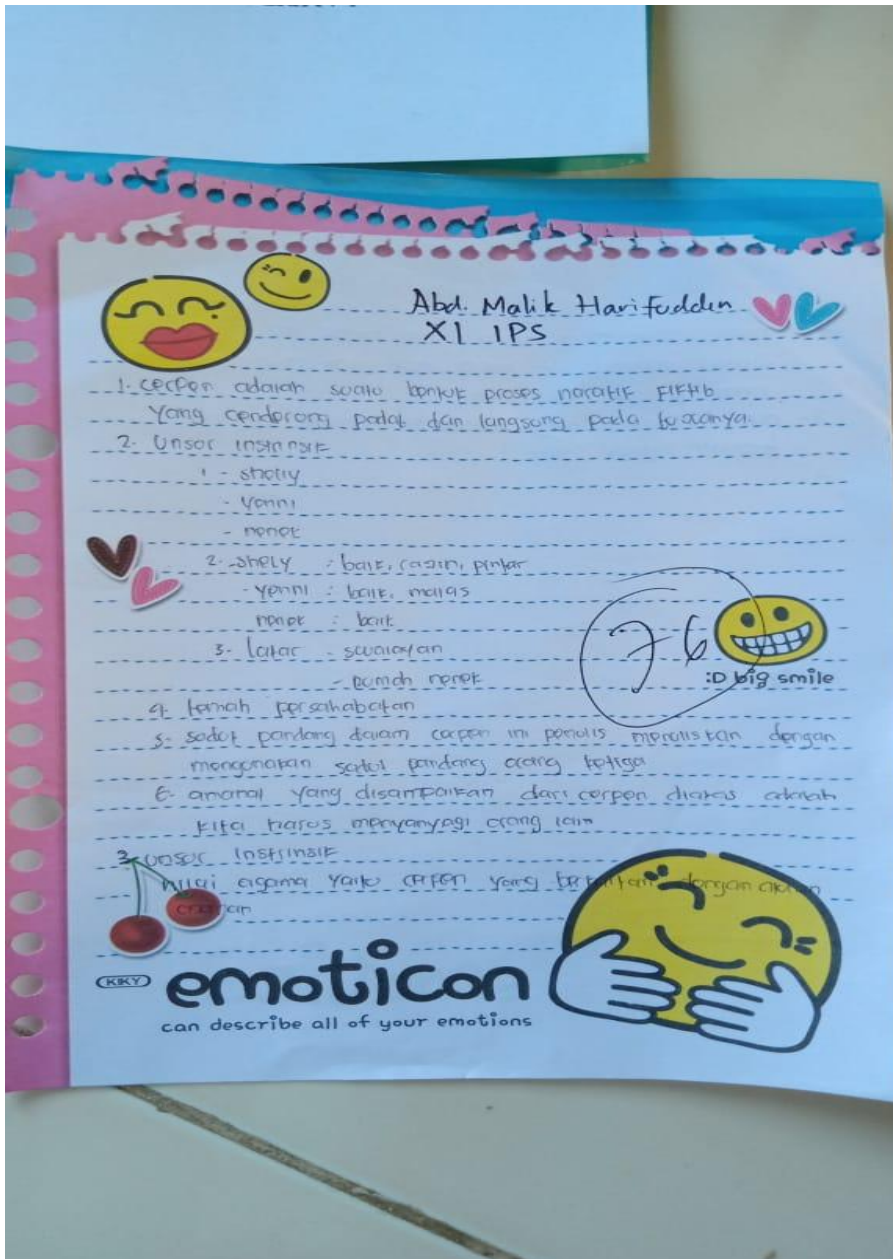 Abd. Malik Harifuddin
XI IPS
1. cerpen adalah suatu bentuk proses naratif FIKtib
yang cenderong padat dan langsong pada tujuanya.
2. Unsor instrinsik
1 - shelly
- Yenni
- nenek
2. - shely : baik, rajin, pintar
- yenni : baik, malas
nenek : baik
3. Latar - swalayan
- rumah nenek
76
:D big smile
4. temah persahabatan
5. sodot pandang dalam cerpen ini penulis menuliskan dengan
mengonakan sodot pandang orang ketiga
6. amanat yang disampaikan dari cerpen diatas adalah
kita haros menyanyagi orang lain
3. unsor instrinsik
nilai agama yaito cerpen yang berkaitan dengan
KIKY
emoticon
can describe all of your emotions